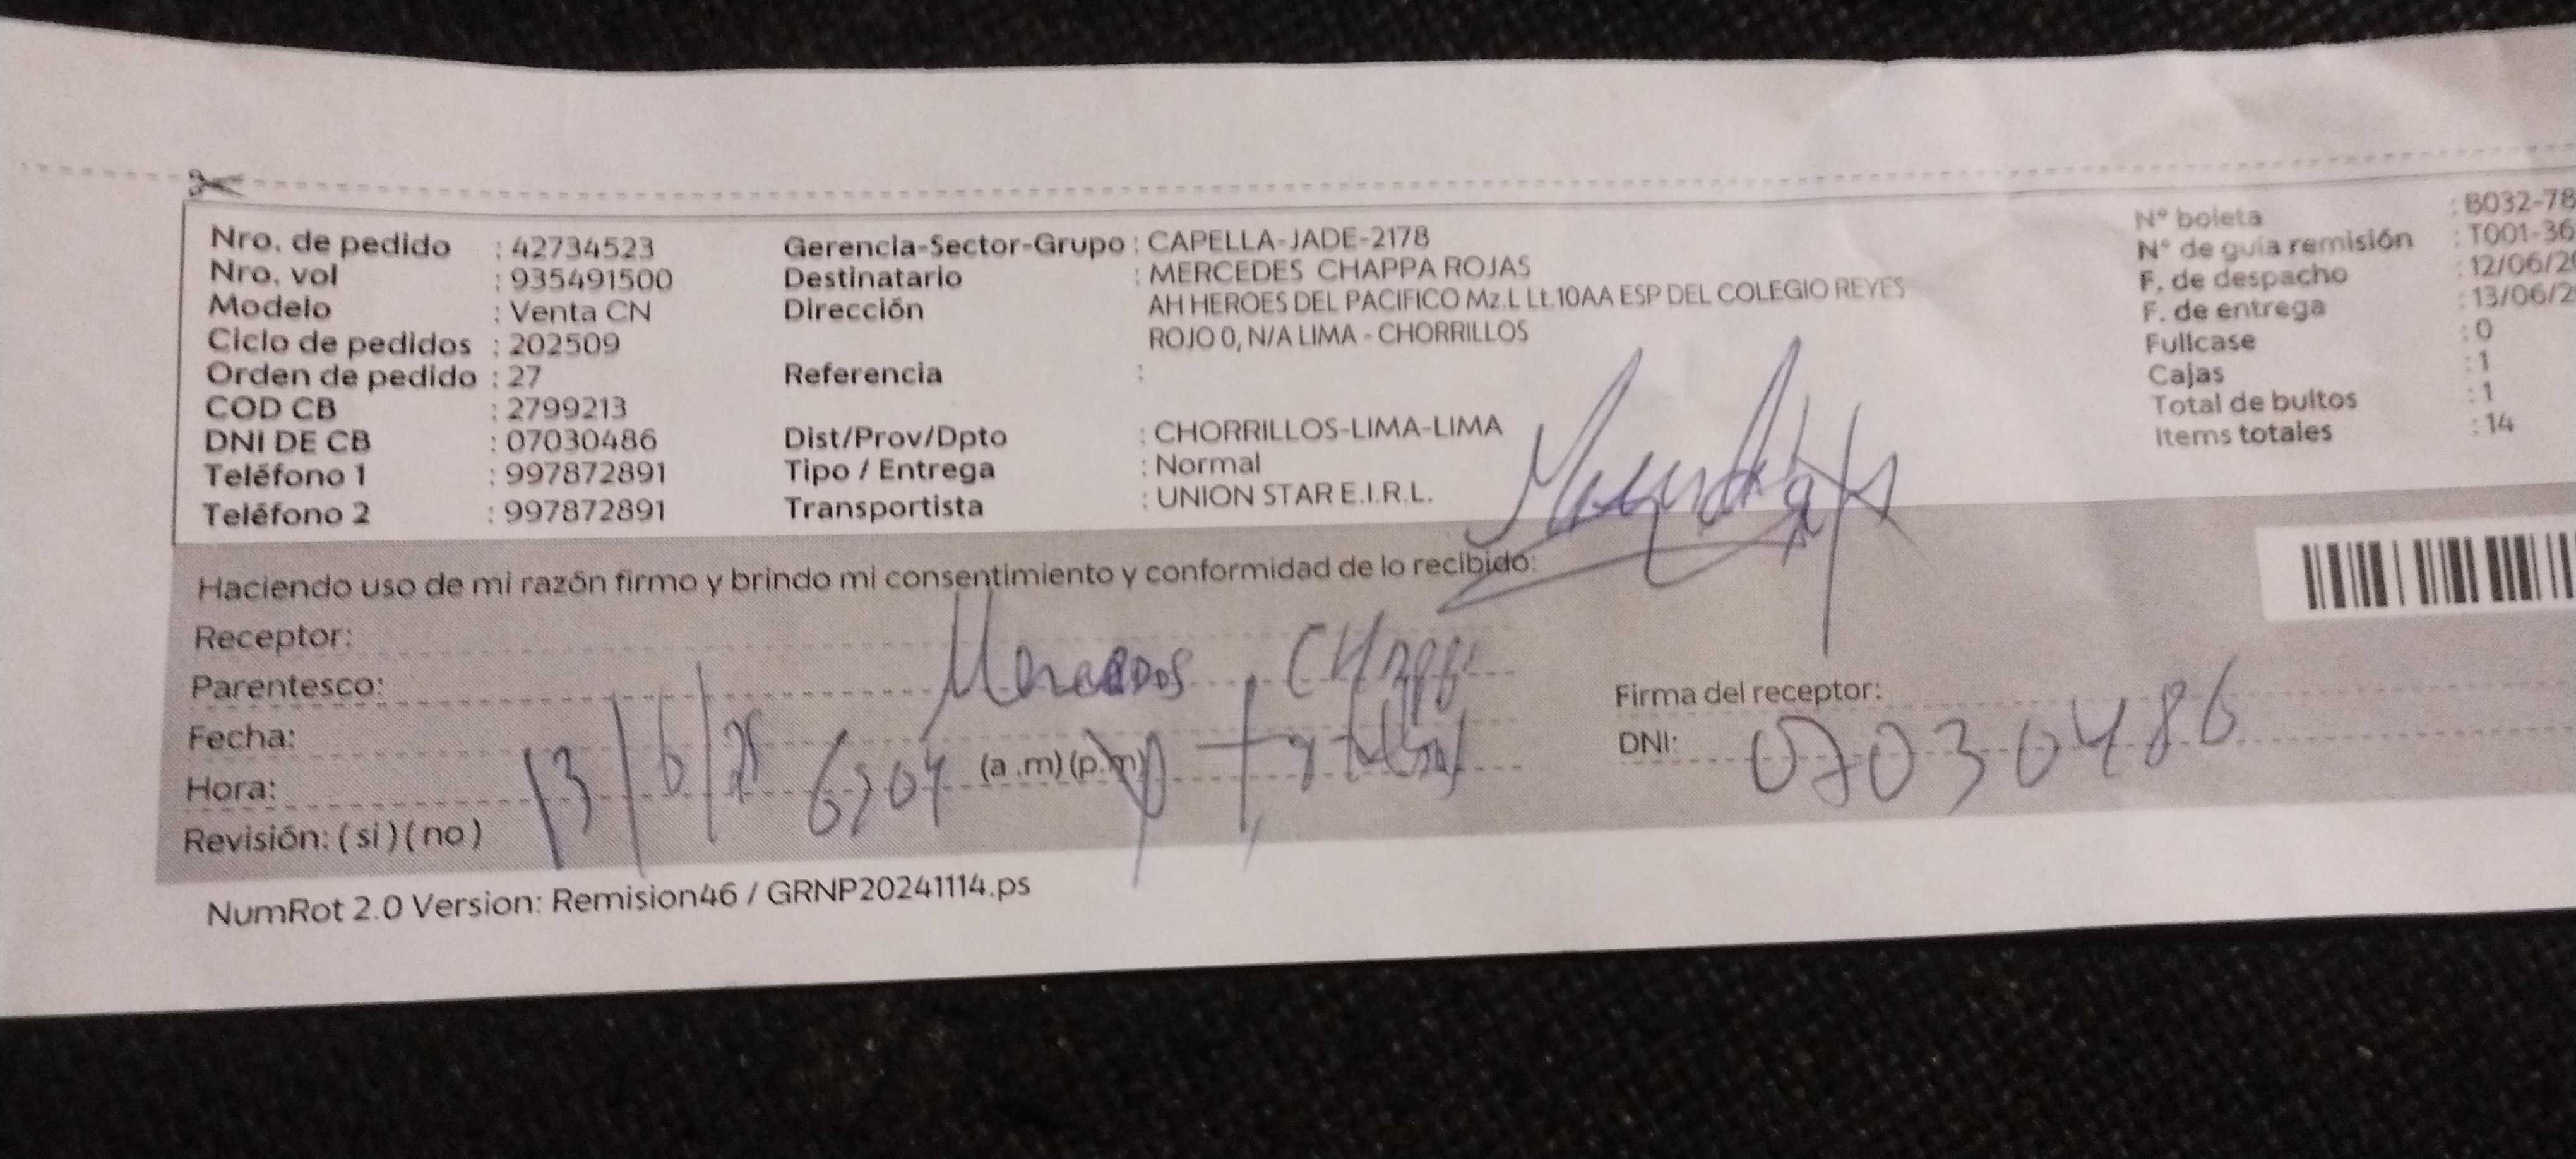 Nro. de pedido : 42734523
Nro. vol : 935491500
Modelo : Venta CN
Ciclo de pedidos : 202509
Orden de pedido : 27
COD CB : 2799213
DNI DE CB : 07030486
Teléfono 1 : 997872891
Teléfono 2 : 997872891
Gerencia-Sector-Grupo : CAPELLA-JADE-2178
Destinatario : MERCEDES CHAPPA ROJAS
Dirección AH HEROES DEL PACIFICO Mz.L Lt.10AA ESP DEL COLEGIO REYES
ROJO 0, N/A LIMA - CHORRILLOS
Referencia :
Dist/Prov/Dpto : CHORRILLOS-LIMA-LIMA
Tipo / Entrega : Normal
Transportista : UNION STAR E.I.R.L.
N° boleta : B032-78
N° de guía remisión : T001-36
F. de despacho : 12/06/20
F. de entrega : 13/06/2
Fullcase : 0
Cajas : 1
Total de bultos : 1
Items totales : 14
Haciendo uso de mi razón firmo y brindo mi consentimiento y conformidad de lo recibido:
Receptor:
Parentesco: Mercedes
Fecha: 13/6/25
Hora: (a.m) (p.m)
Revisión: (si) (no)
Firma del receptor:
DNI: 07030486
NumRot 2.0 Version: Remision46 / GRNP20241114.ps